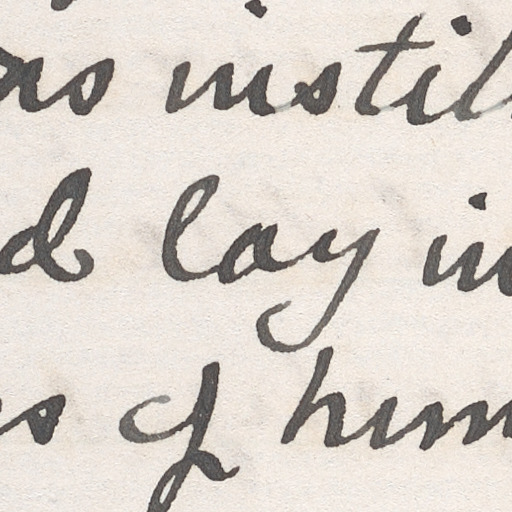 as instil
d lay in
s of hum